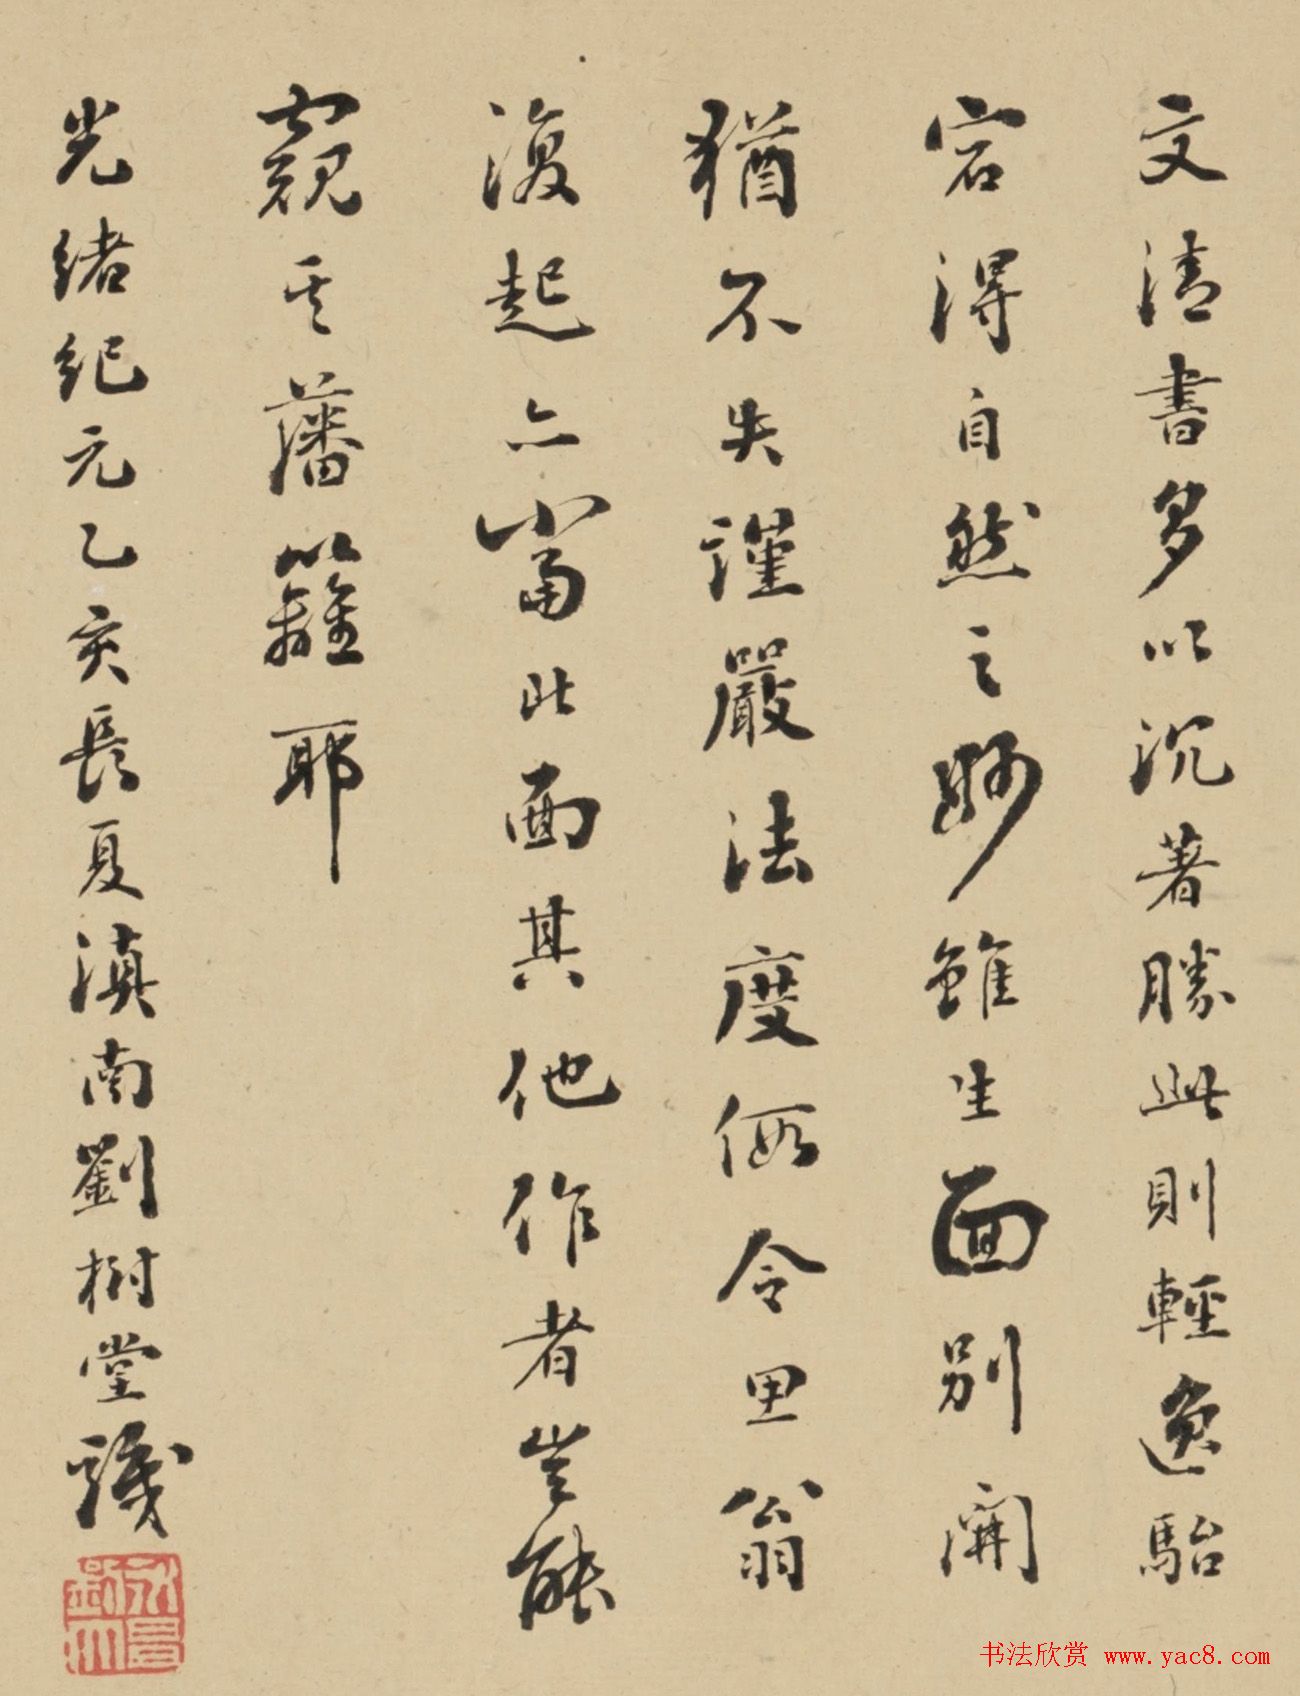 文清書多以沉著勝此則輕逸駘
宕得自然之眇雖生面別開
猶不失謹嚴法度假令思翁
復起亦當北面其他作者豈能
窺其藩籬耶
光緒紀元乙亥長夏滇南劉樹堂識
书法欣赏 www.yac8.com